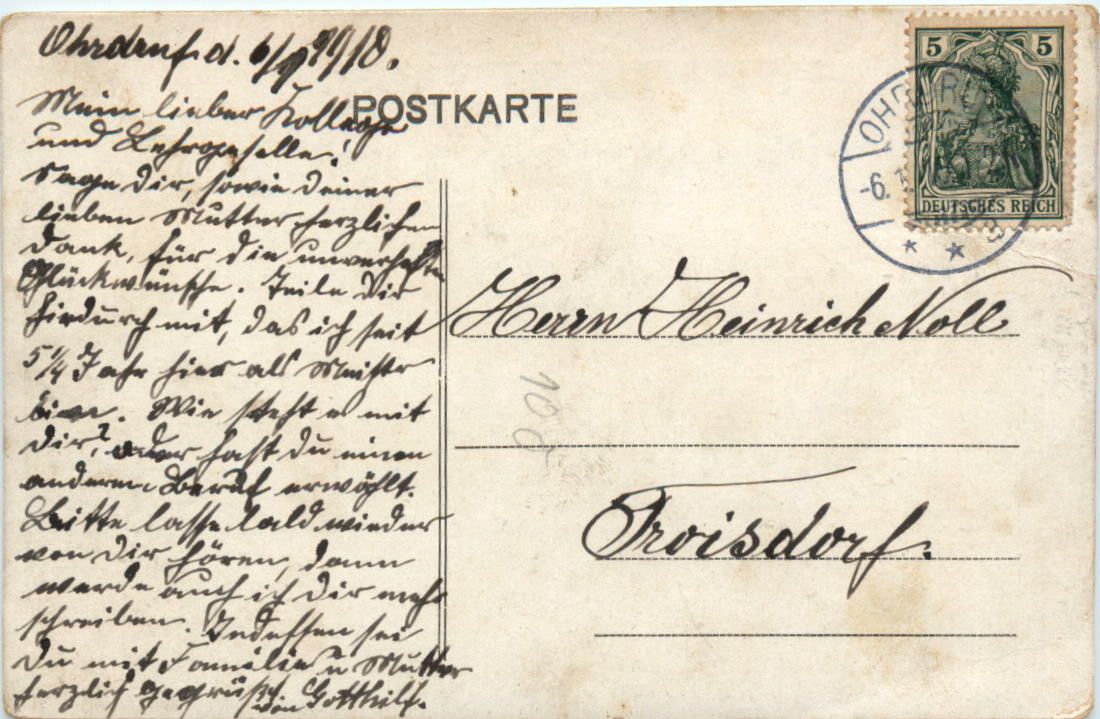 Ohrdruf. d. 6/9 1910.
Mein lieber Kollege
und Lehrgeselle!
Sage Dir, sowie Deiner
lieben Mutter herzlichen
Dank, für die unverhofften
Glückwünsche. Teile Dir
hirdurch mit, das ich seit
5 1/4 Jahr hier als Meister
bin. Wie steht es mit
Dir?, oder hast Du einen
anderen Beruf erwählt.
Bitte lasse bald wieder
von Dir hören, dann
werde auch ich Dir mehr
schreiben. Indessen sei
Du mit Familie u Mutter
herzlich gegrüßt.
von Gotthilf.
POSTKARTE
5 5
DEUTSCHES REICH
Herrn Heinrich Noll
Troisdorf.